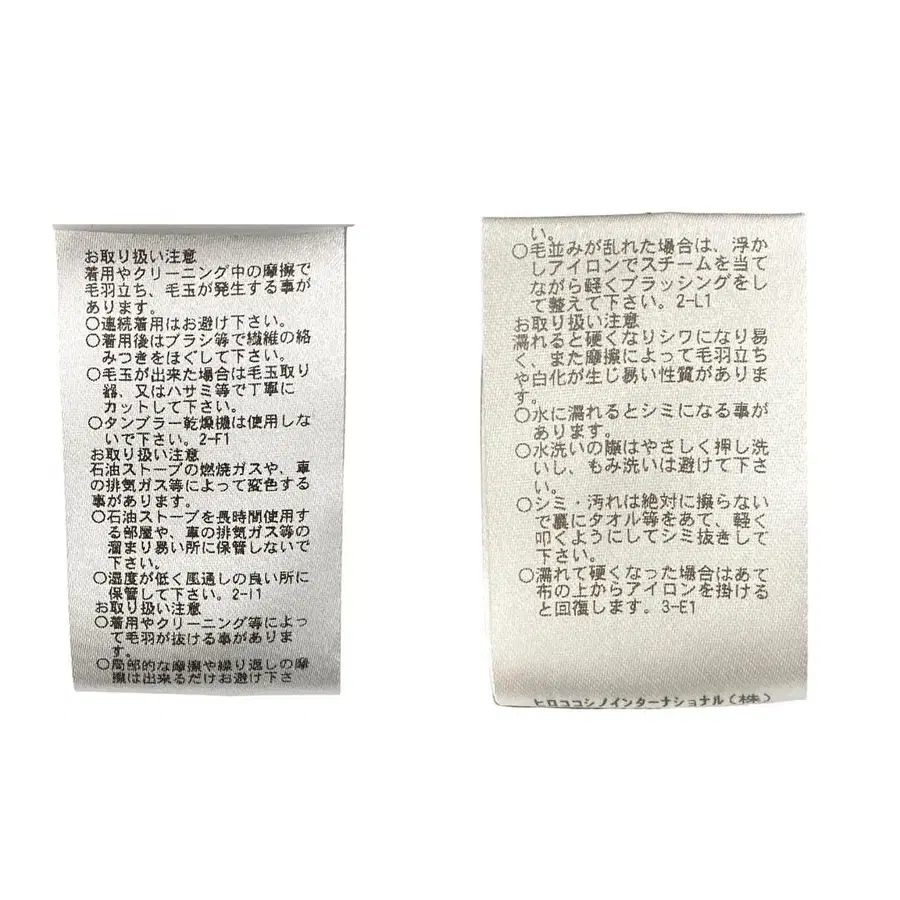 お取り扱い注意
着用やクリーニング中の摩擦で
毛羽立ち、毛玉が発生する事が
あります。
○連続着用はお避け下さい。
○着用後はブラシ等で繊維の絡
みつきをほぐして下さい。
○毛玉が出来た場合は毛玉取り
器、又はハサミ等で丁寧に
カットして下さい。
○タンブラー乾燥機は使用しな
いで下さい。2-F1
お取り扱い注意
石油ストーブの燃焼ガスや、車
の排気ガス等によって変色する
事があります。
○石油ストーブを長時間使用す
る部屋や、車の排気ガス等の
溜まり易い所に保管しないで
下さい。
○湿度が低く風通しの良い所に
保管して下さい。2-I1
お取り扱い注意
○着用やクリーニング等によっ
て毛羽が抜ける事がありま
す。
○局部的な摩擦や繰り返しの摩
擦は出来るだけお避け下さ
い。
○毛並みが乱れた場合は、浮か
しアイロンでスチームを当て
ながら軽くブラッシングをし
て整えて下さい。2-L1
お取り扱い注意
濡れると硬くなりシワになり易
く、また摩擦によって毛羽立ち
や白化が生じ易い性質がありま
す。
○水に濡れるとシミになる事が
あります。
○水洗いの際はやさしく押し洗
いし、もみ洗いは避けて下さ
い。
○シミ・汚れは絶対に擦らない
で裏にタオル等をあて、軽く
叩くようにしてシミ抜きして
下さい。
○濡れて硬くなった場合はあて
布の上からアイロンを掛ける
と回復します。3-E1
ヒロココシノインターナショナル(株)